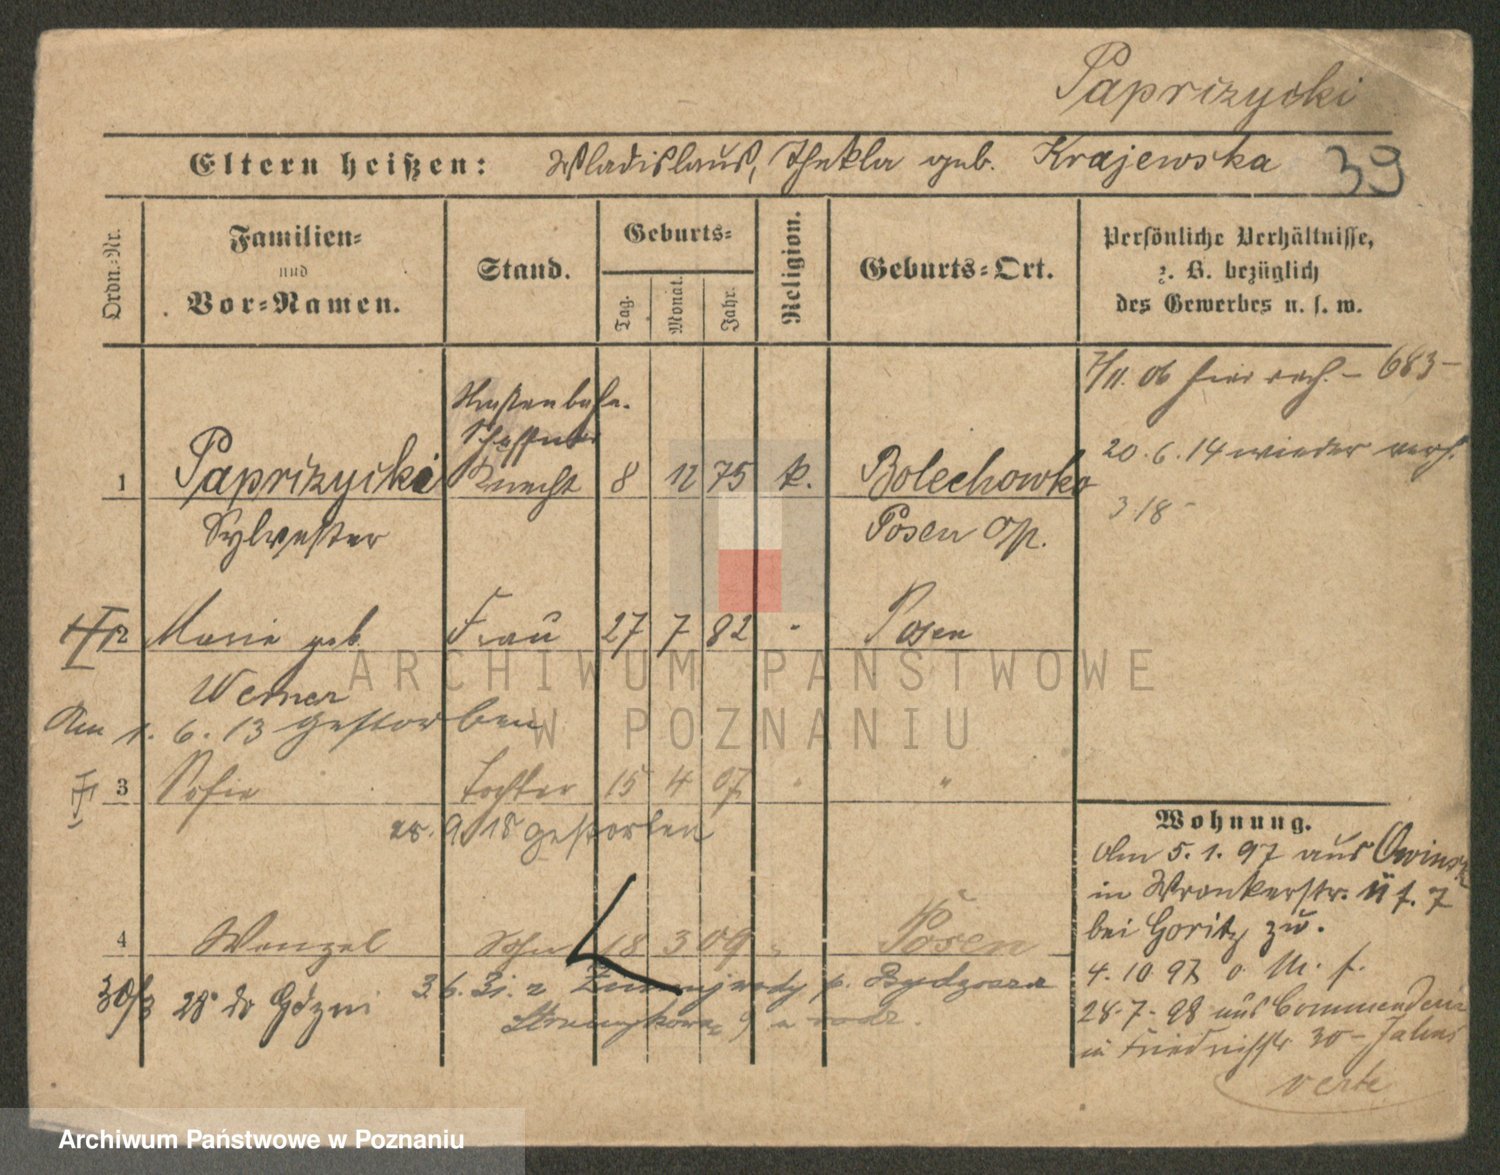 Paprizycki
Eltern heißen: Wladislaus, Thekla geb. Krajewska 39
Ordn.-Nr. Familien- und Vor-Namen. Stand. Geburts- Tag. Monat. Jahr. Religion. Geburts-Ort. Persönliche Verhältnisse, z. B. bezüglich des Gewerbes u. s. w.
7/11. 06 683-
Straßenbahn.
Schaffner
20.6.14 wieder verh.
1 Paprizycki Knecht 8 12 75 k. Bolechowko
318-
Sylvester Posen Op.
2 Marie geb. Frau 27 7 82 " Posen
Werner
Am 1.6.13 gestorben
3 Sofie Tochter 15 4 07 " "
9. 18 gestorben
Wohnung.
Am 5.1.97 aus Owinsk
in Wronkerstr. 11 f. 7
bei Goritz zu.
4 Wenzel Sohn 18 3 09 " Posen
4.10.97 o. M. f.
30/3 28 do Gdyni 3.6.31. z p. Bydgoszcz
28.7.98 aus Commenderie
in Friedrichstr 30-
verte
ARCHIWUM PAŃSTWOWE
W POZNANIU
Archiwum Państwowe w Poznaniu